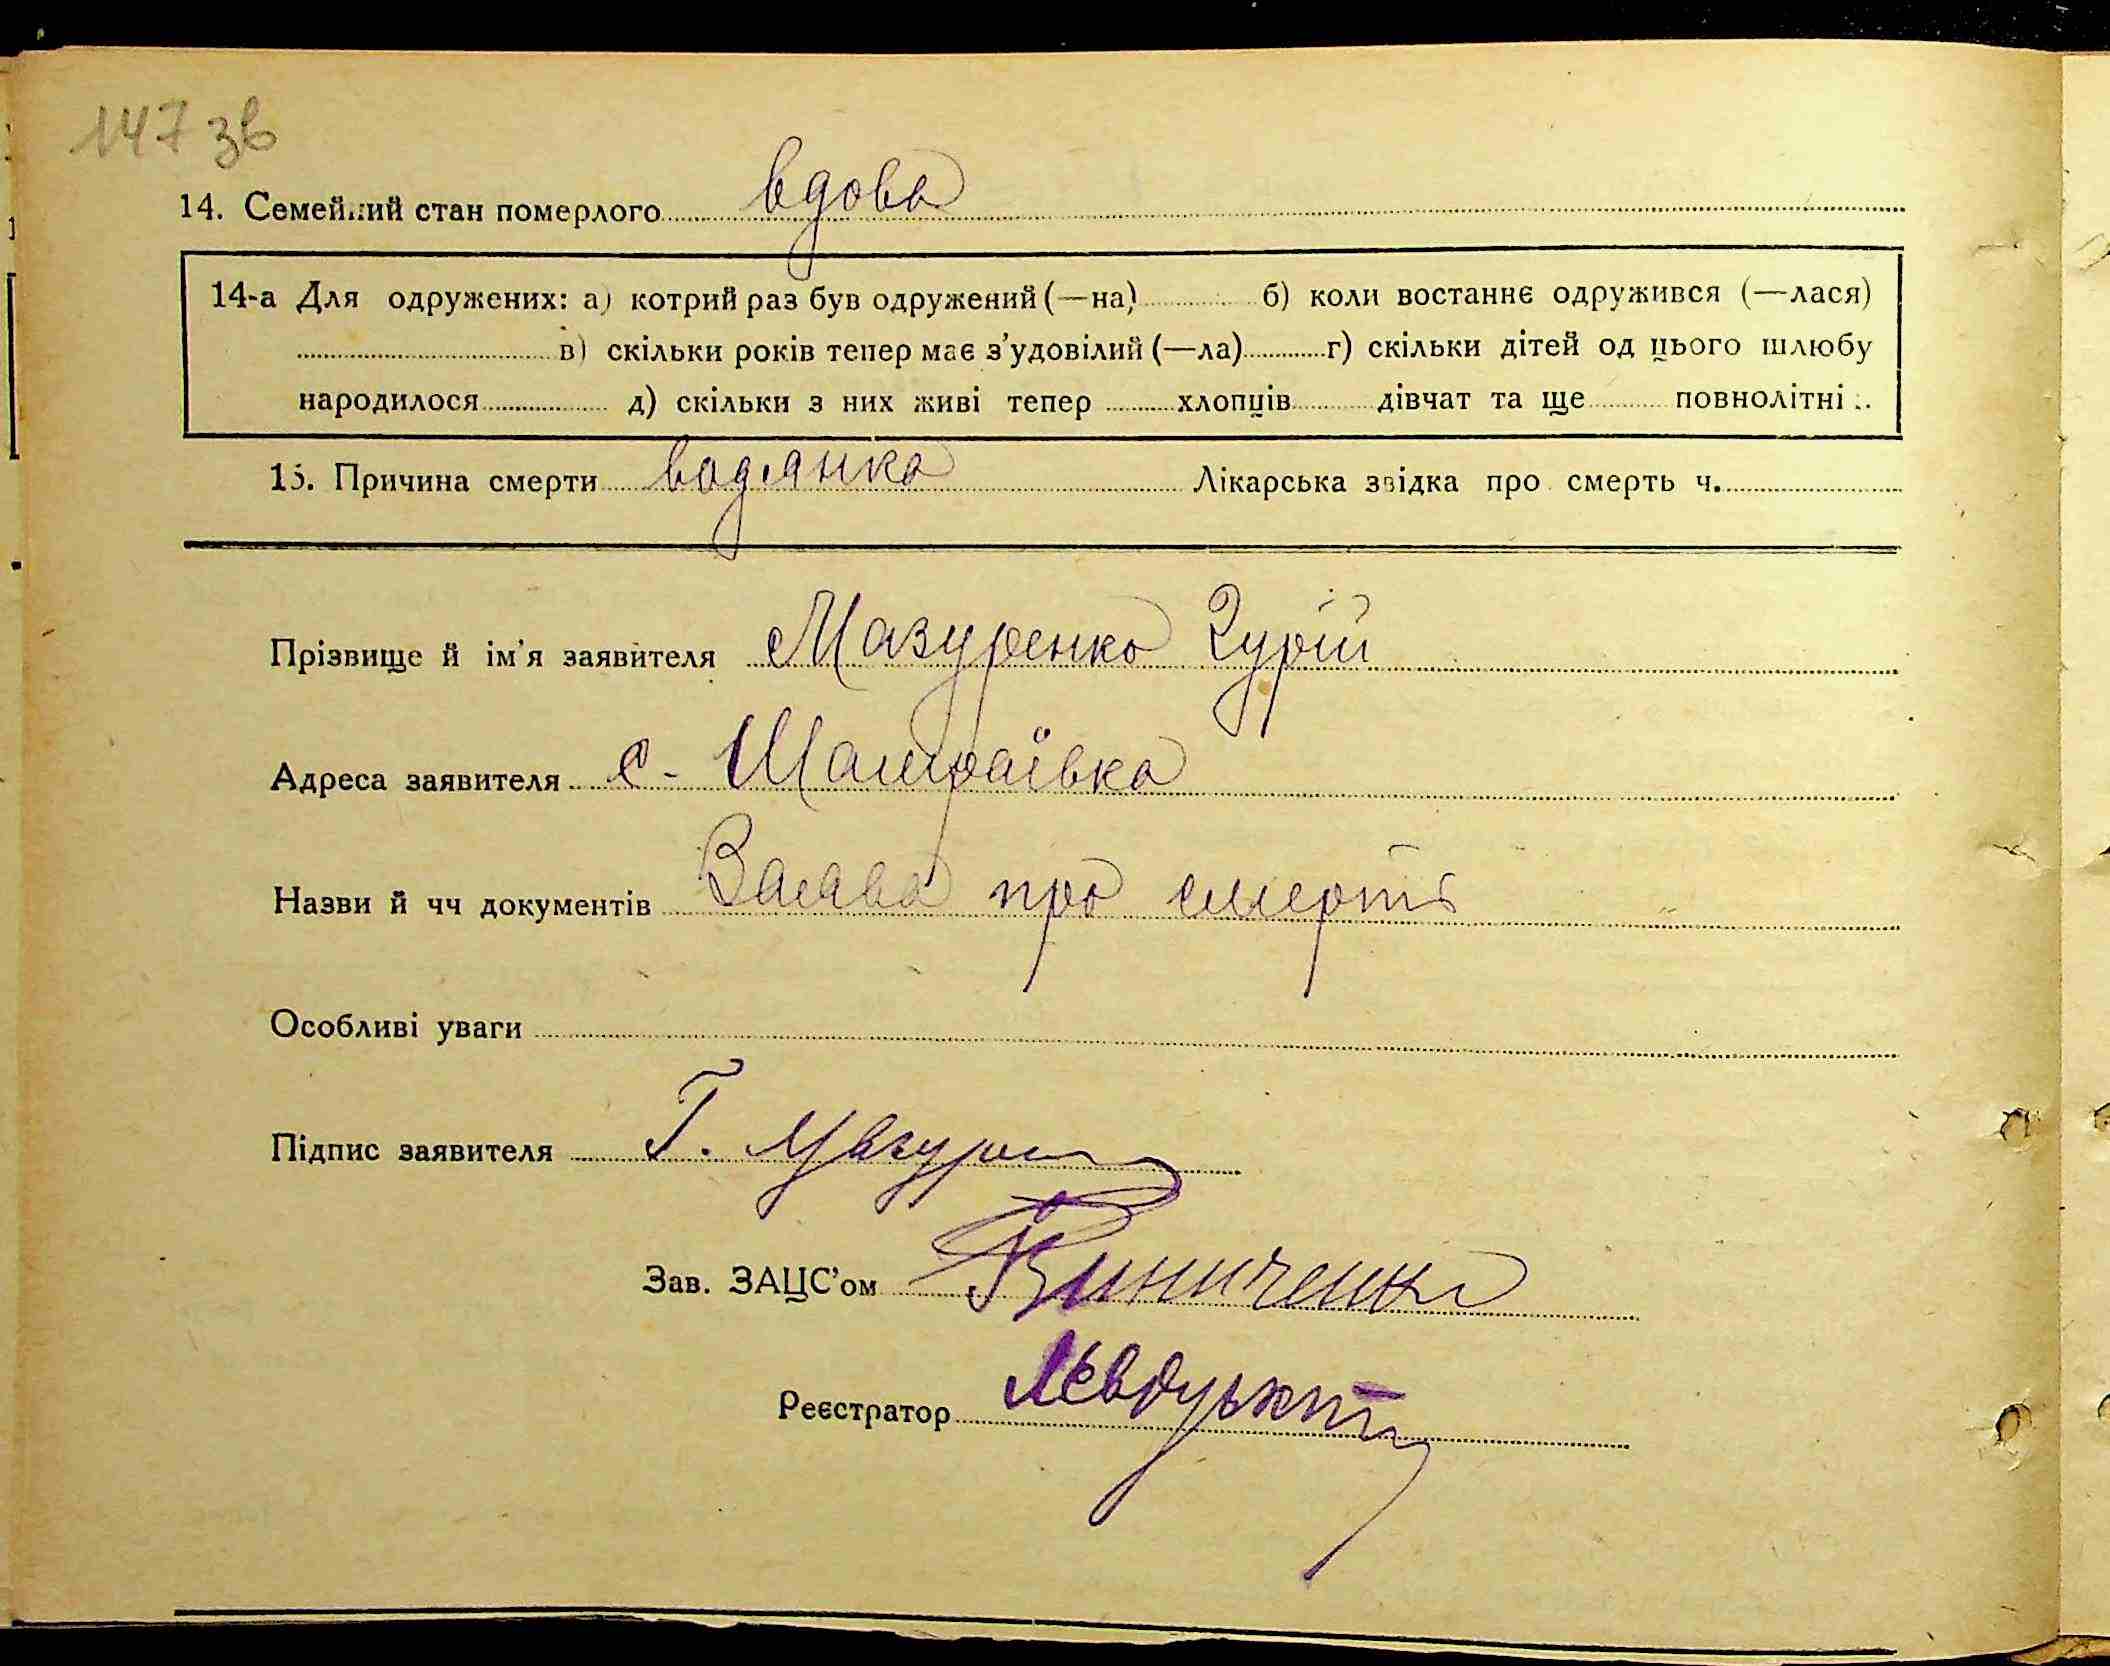 147 зв
14. Семейний стан померлого вдова
14-а Для одружених: а) котрий раз був одружений (—на) б) коли востаннє одружився (—лася)
в) скільки років тепер має з'удовілий (—ла) г) скільки дітей од цього шлюбу
народилося д) скільки з них живі тепер хлопців дівчат та ще повнолітні
15. Причина смерти водянка Лікарська звідка про смерть ч.
Прізвище й ім'я заявителя Мазуренко Гурій
Адреса заявителя с. Шамраївка
Назви й чч документів Заява про смерть
Особливі уваги
Підпис заявителя Г. Мазурен
Зав. ЗАЦС'ом Винниченко
Реєстратор